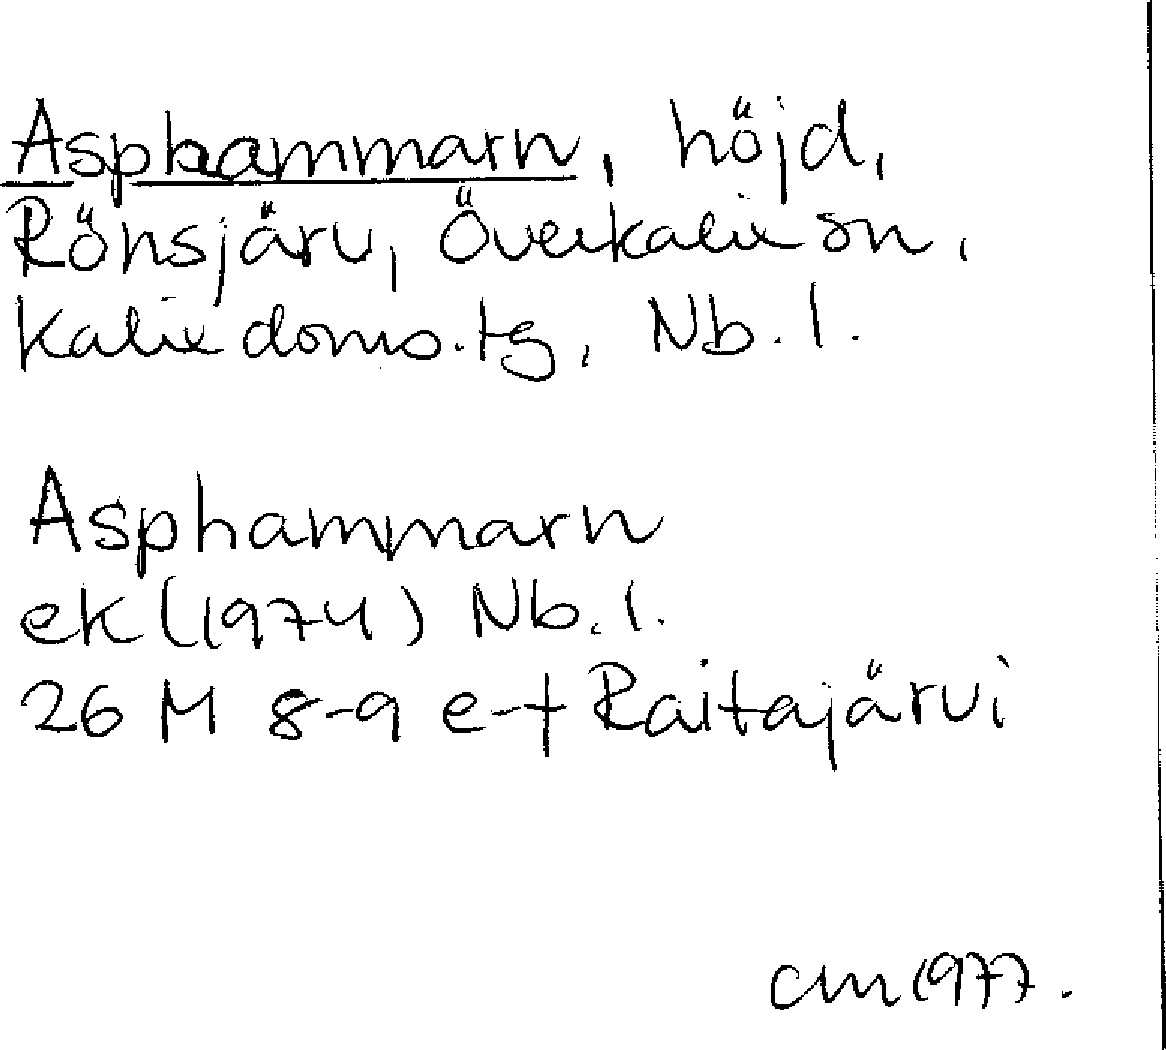 Asphammarn, höjd,
Röhsjärv, Överkalix sn,
Kalix doms.tg, Nb. l.
Asphammarn
ek (1974) Nb. l.
26 M 8-9 e-f Raitajärvi
CM 1977.